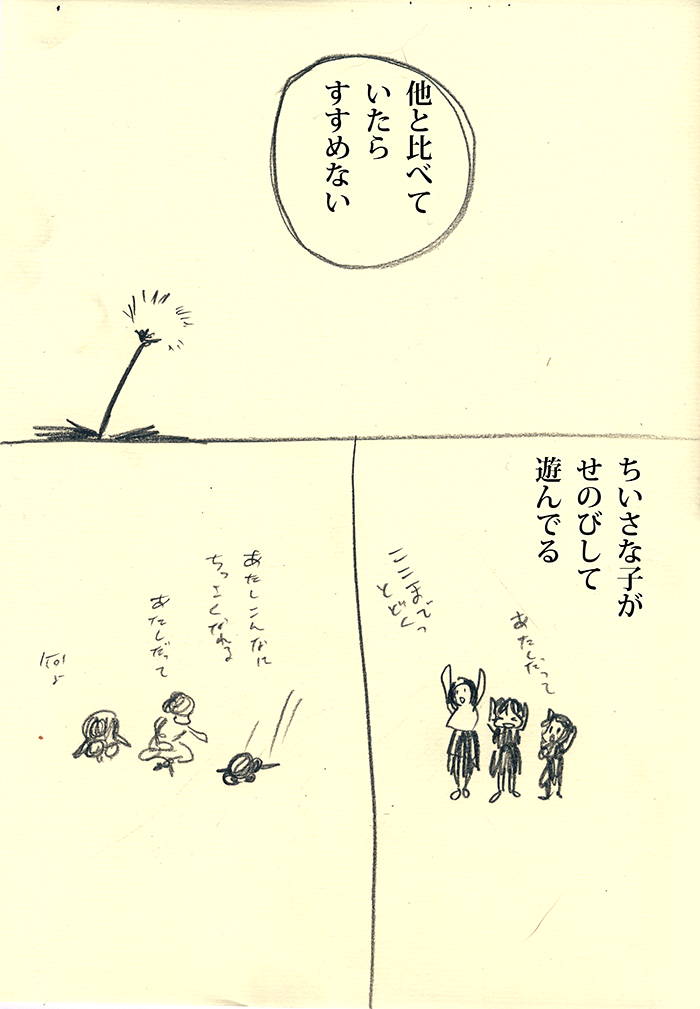 他と比べて
いたら
すすめない
ちいさな子が
せのびして
遊んでる
あたしだって
ここまでっ
とどく
あたしこんなに
ちっこくなれる
あたしだって